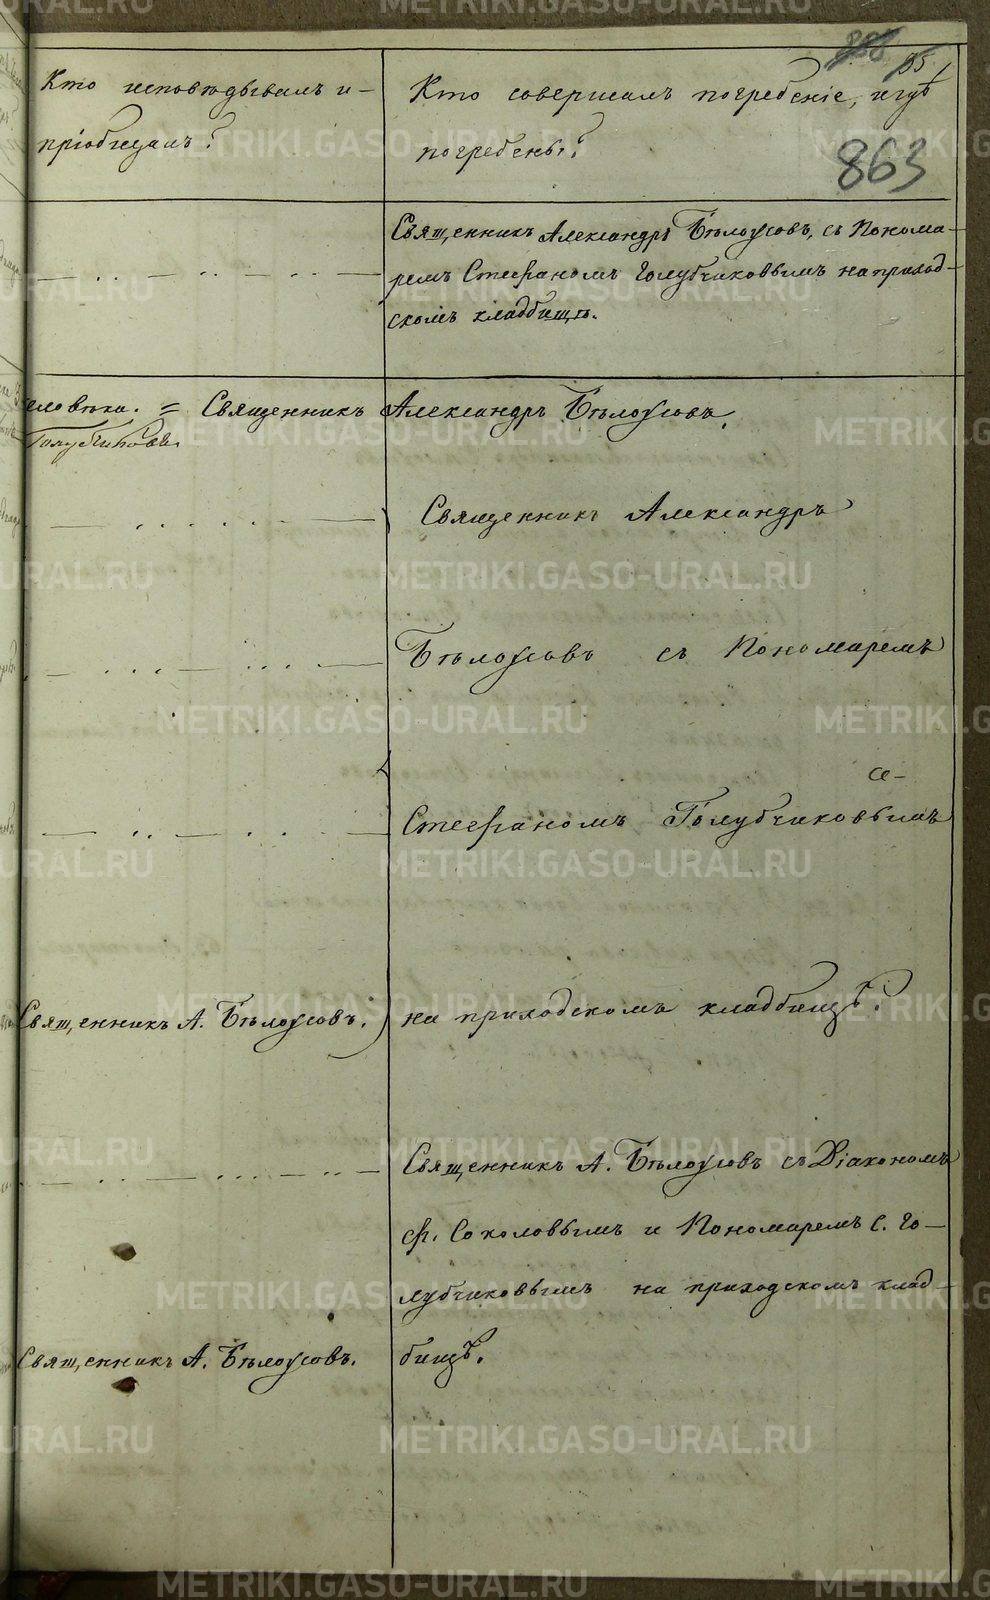 863
Кто исповѣдывалъ и
пріобщалъ?
Кто совершалъ погребеніе, и гдѣ
погребены?
Священникъ Александръ Бѣлоусовъ, съ Понома-
ремъ Стефаномъ Голубчиковымъ на приход-
скомъ кладбищѣ.
еловѣка. = Священникъ Александръ Бѣлоусовъ.
Священникъ Александръ
Бѣлоусовъ съ Пономаремъ
Стефаномъ Голубчиковымъ
Священникъ А. Бѣлоусовъ.
на приходскомъ кладбищѣ.
Священникъ А. Бѣлоусовъ съ Діакономъ
Ф. Соколовымъ и Пономаремъ С. Го-
лубчиковымъ на приходскомъ клад-
Священникъ А. Бѣлоусовъ.
бищѣ.
METRIKI.GASO-URAL.RU